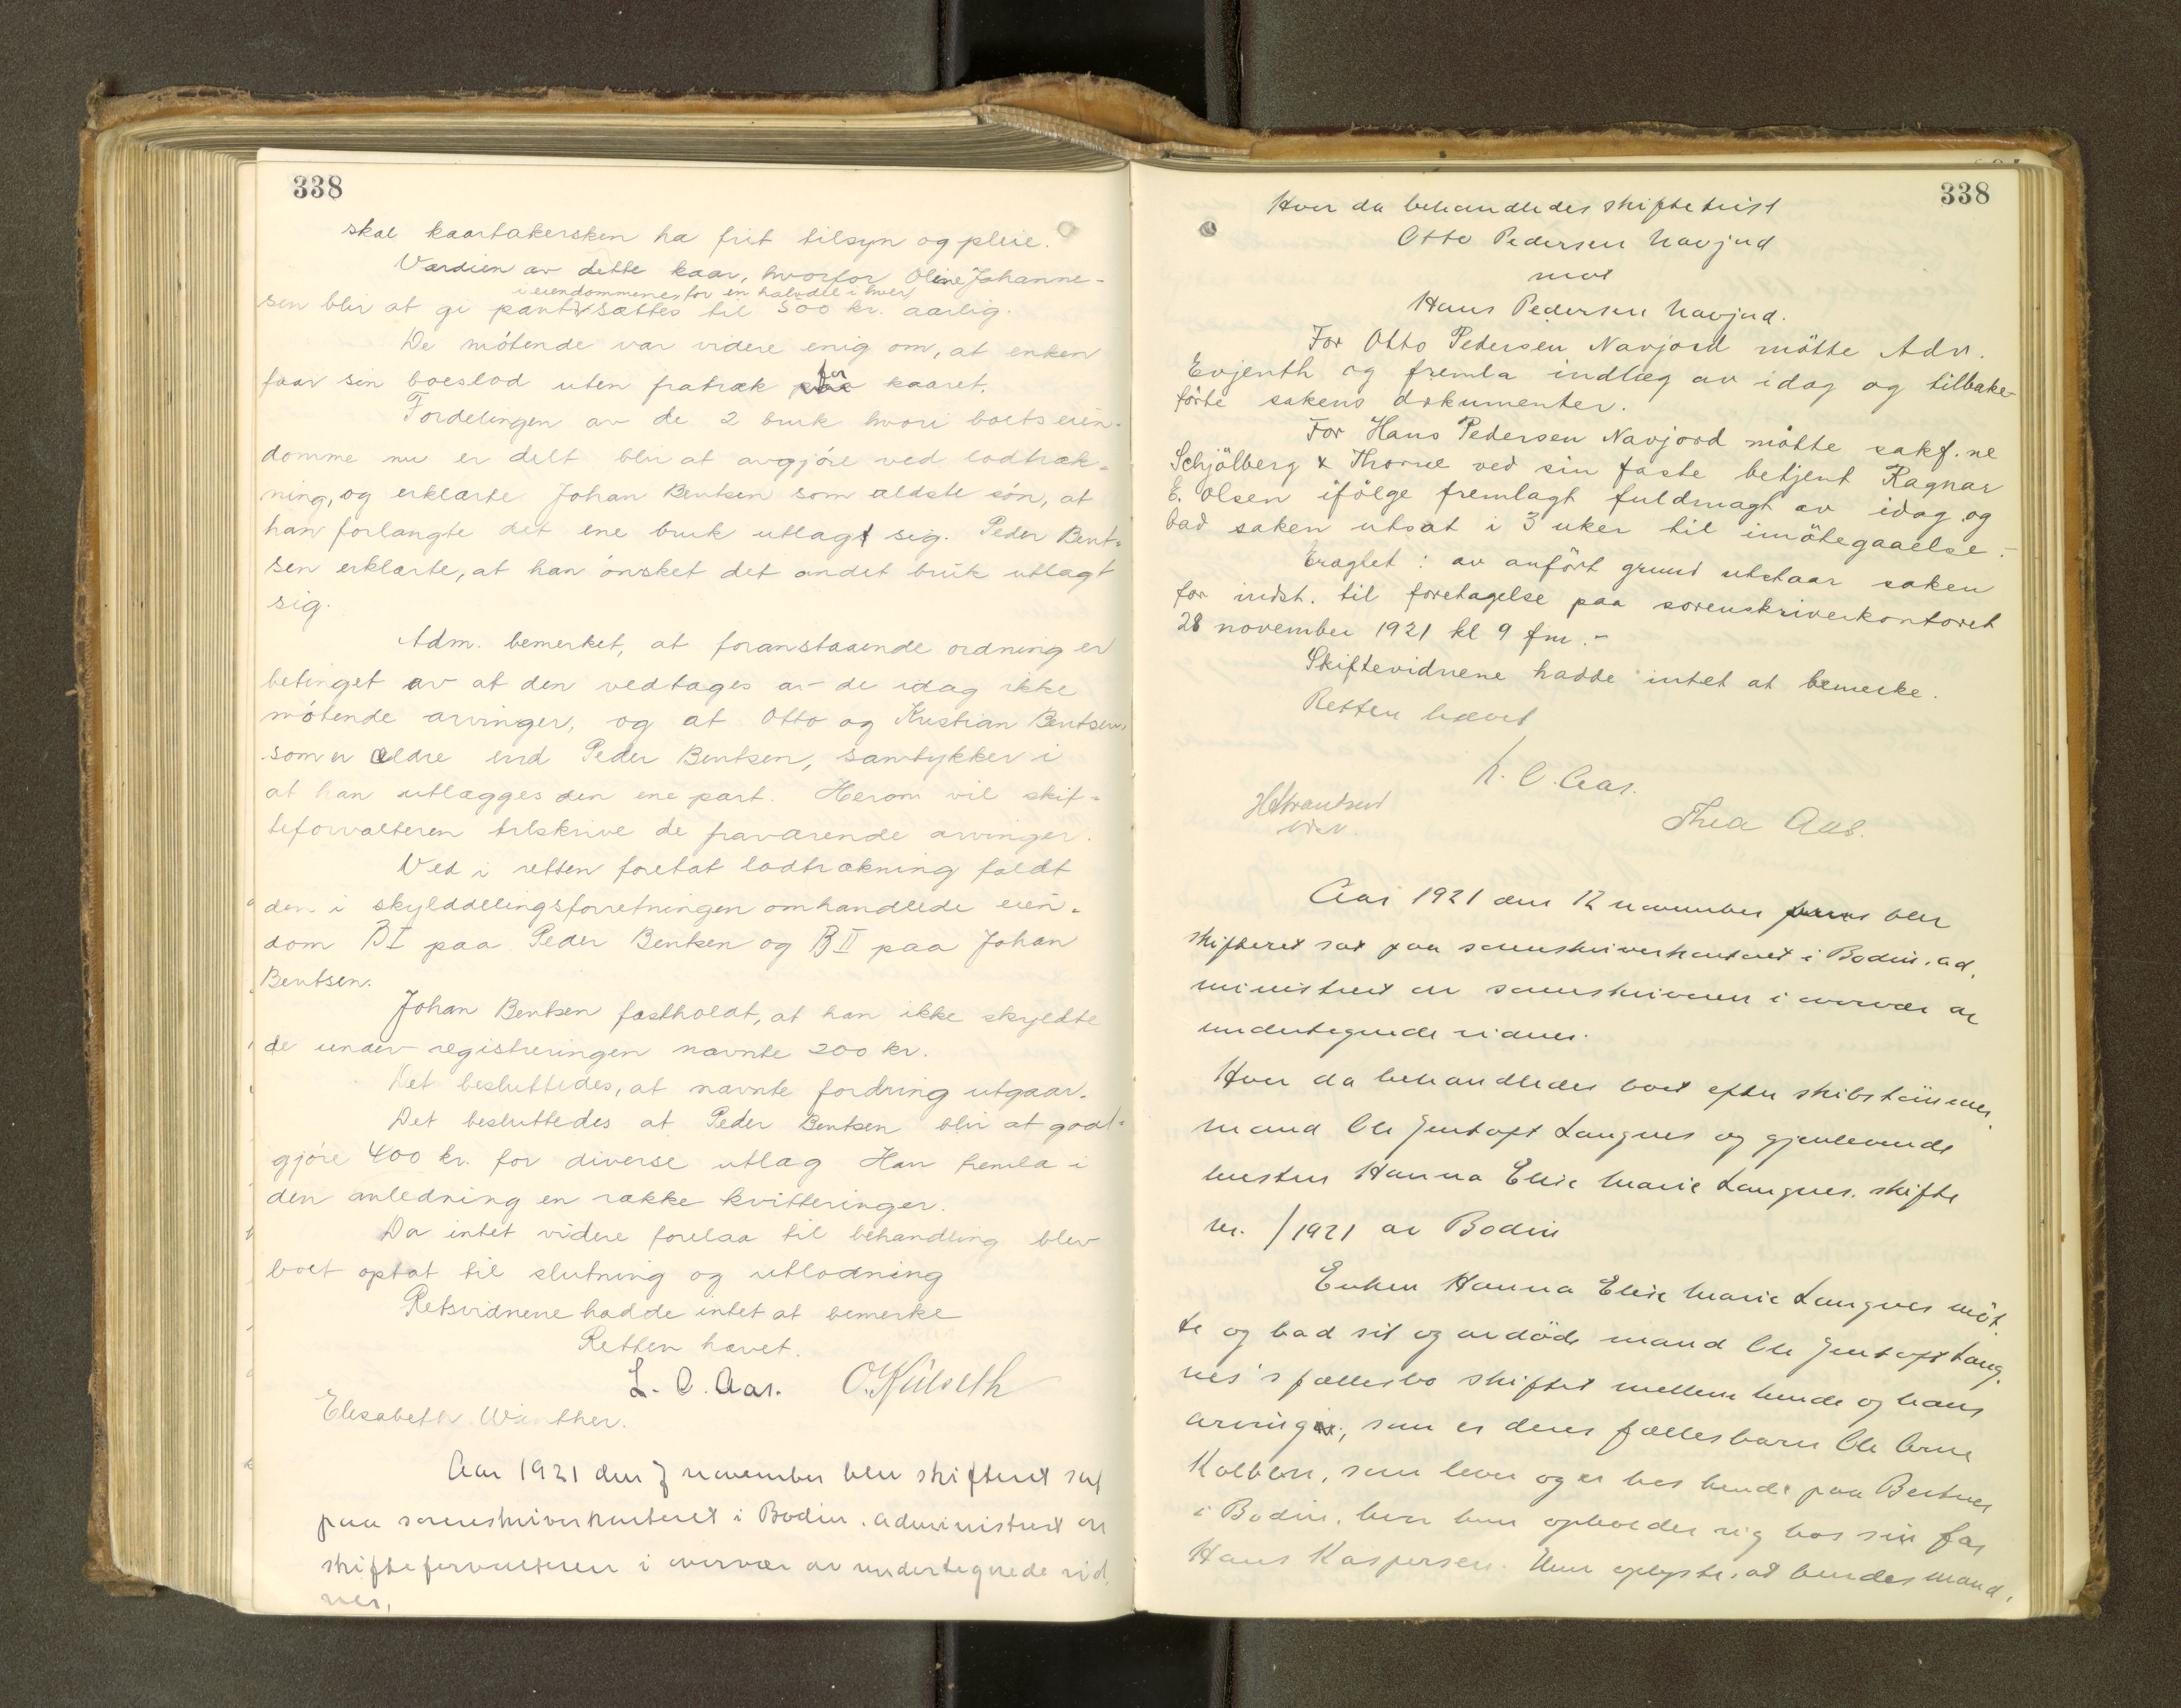 338
skal kaartakersken ha frit tilsyn og pleie.
Værdien av dette kaar, hvorfor Oline Johanne-
i eiendommene for en halvdel i hver,
sen blir at gi pant sættes til 500 kr. aarlig.
De møtende var videre enig om, at enken
faar sin boeslod uten fratræk for kaaret.
Fordelingen av de 2 bruk hvori boets eien-
domme nu er delt blir at avgjøre ved lodtræk-
ning, og erklærte Johan Bentsen som ældste søn, at
han forlangte det ene bruk utlagt sig. Peder Bent-
sen erklærte, at han ønsket det andet bruk utlagt
sig.
Adm. bemerket, at foranstaaende ordning er
betinget av at den vedtages av de idag ikke
møtende arvinger, og at Otto og Kristian Bentsen,
som er ældre end Peder Bentsen, samtykker i
at han utlægges den ene part. Herom vil skif-
teforvalteren tilskrive de fraværende arvinger.
Ved i retten foretat lodtrækning faldt
den i skylddelingsforretningen omhandlede eien-
dom B I paa Peder Bentsen og B II paa Johan
Bentsen.
Johan Bentsen fastholdt, at han ikke skyldte
de under registreringen nævnte 200 kr.
Det besluttedes, at nævnte fordring utgaar.
Det besluttedes at Peder Bentsen blir at godt-
gjøre 400 kr. for diverse utlæg Han fremla i
den anledning en række kvitteringer.
Da intet videre forelaa til behandling blev
boet optat til slutning og utlodning
Retsvidnene hadde intet at bemerke
Retten hævet.
L. C. Aas. O. Kulseth
Elisabeth Winther.
Aar 1921 den 7 november blev skifteret sat
paa sorenskriverkontoret i Bodin. administrert av
skifteforvalteren i overvær av undertegnede vid
ner.
338
Hvor da behandledes skiftetvist
Otto Pedersen Navjord
mot
Hans Pedersen Navjord.
For Otto Pedersen Navjord møtte Adv.
Evjenth og fremla indlæg av idag og tilbake-
førte sakens dokumenter.
For Hans Pedersen Navjord møtte sakf.ne
Schjølberg & Thorne ved sin faste betjent Ragnar
E. Olsen ifølge fremlagt fuldmagt av idag og
bad saken utsat i 3 uker til imøtegaaelse.-
Eragtet: av anført grund utstaar saken
for indst. til foretagelse paa sorenskriverkontoret
28 november 1921 kl 9 fm.-
Skiftevidnene hadde intet at bemerke.
Retten hævet
L. C. Aas.
Thea Aas.
Aar 1921 den 12 november blev
skifteret sat paa sorenskriverkontoret i Bodin. ad,
ministrert av sorenskriveren i overvær av
undertegnede vidner.
Hvor da behandledes boet efter skibstømmer,
mand Ole Jentoft Langnes og gjenlevende
hustru Hanna Elise Marie Langnes. skifte
nr. /1921 av Bodin
Enken Hanna Elise Marie Langnes møt.
te og bad sit og avdøde mand Ole Jentoft Lang.
nes's fællesbo skiftet mellem hende og hans
arving, som er deres fællesbarn Ole Arne
Kolbein, som lever og er hos hende paa Bertnes
i Bodin, hvor hun opholder sig hos sin far
Hans Kaspersen. Hun oplyste, at hendes mand,